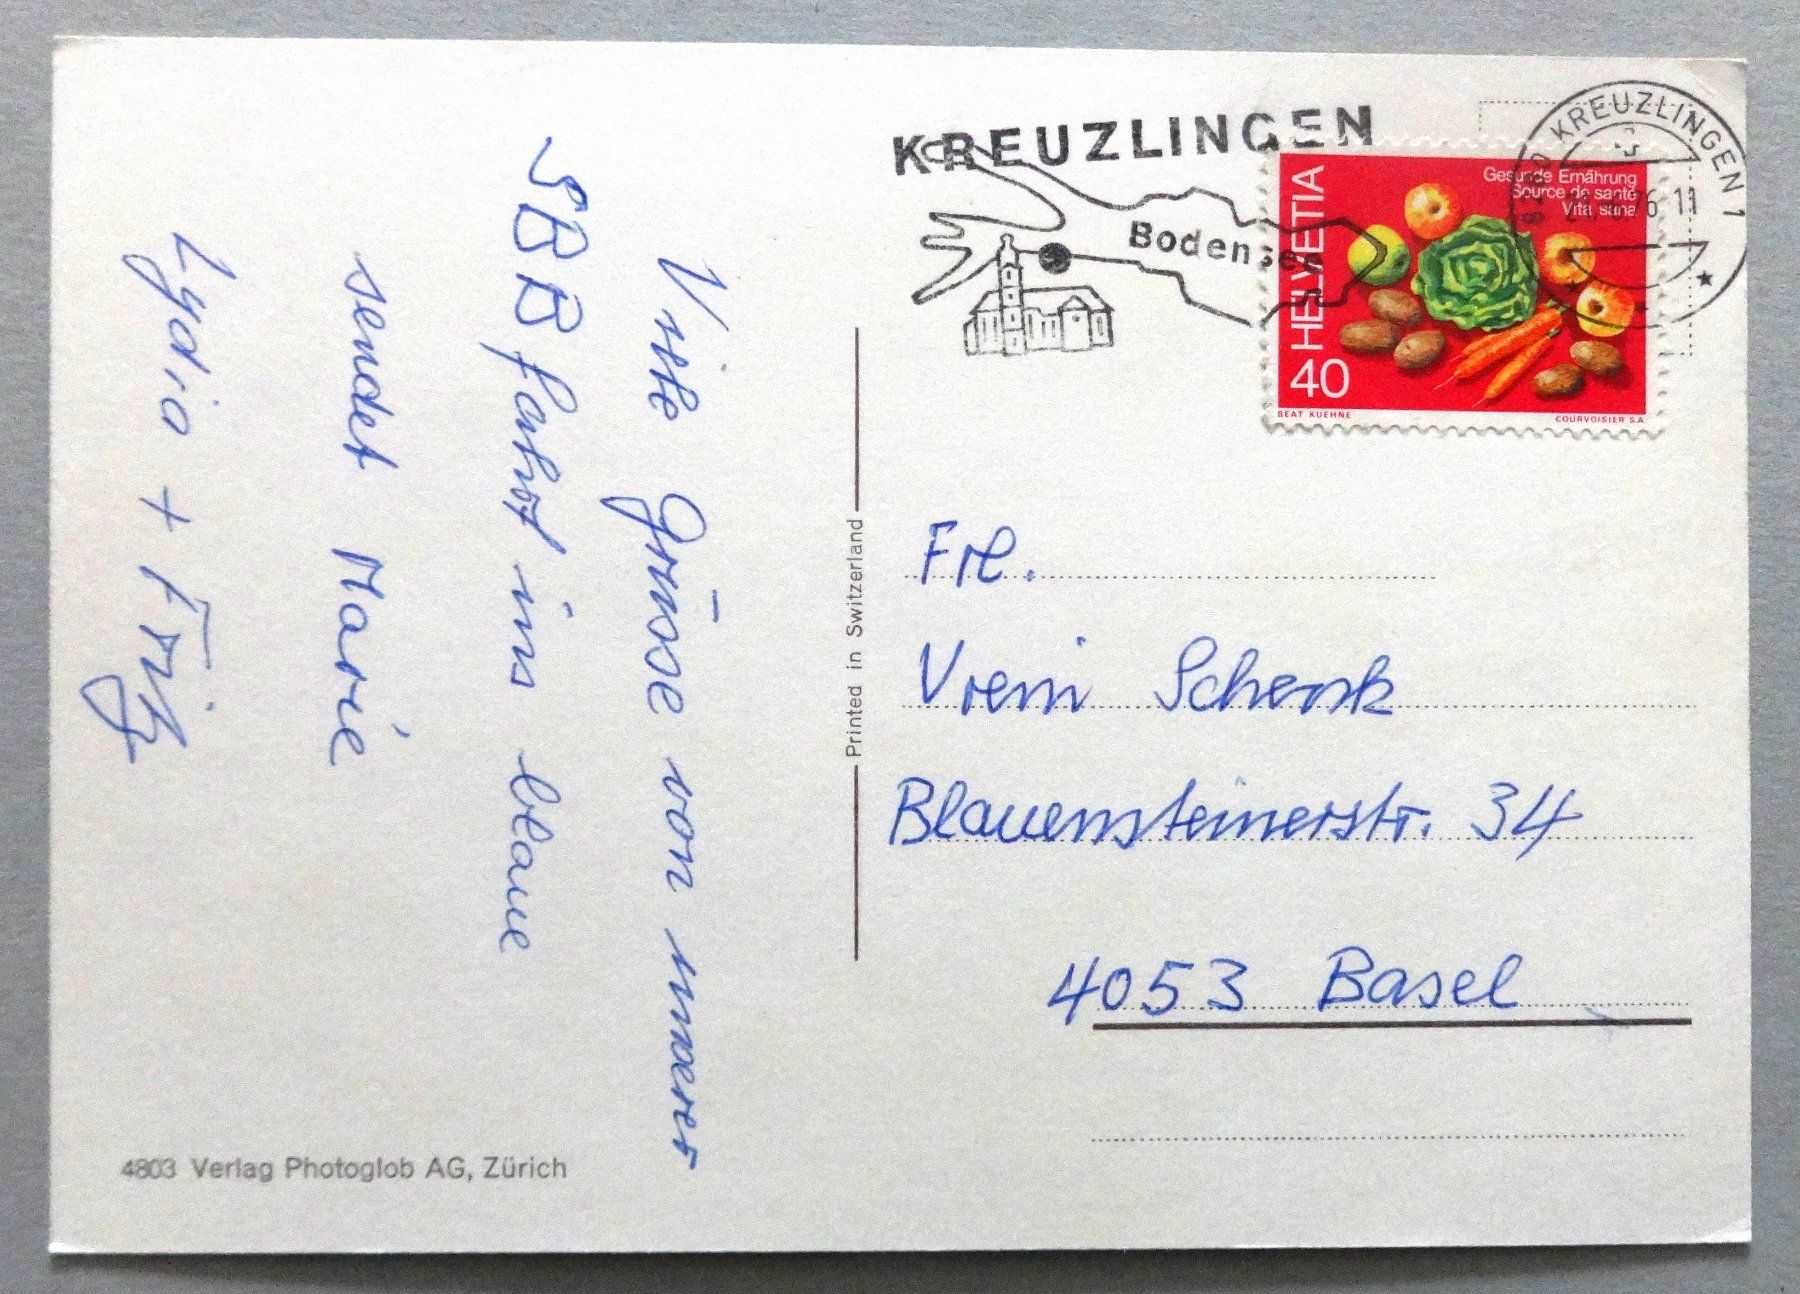 Viele Grüsse von unserer
SBB fahrt ins blaue
sendet Marie
Lydia + Fritz
4803 Verlag Photoglob AG, Zürich
Printed in Switzerland
KREUZLINGEN
Bodensee
KREUZLINGEN 1
76 11
HELVETIA
40
Gesunde Ernährung
Source de santé
Vita sana
BEAT KUEHNE
COURVOISIER S.A.
Frl.
Vreni Schenk
Blauensteinerstr. 34
4053 Basel